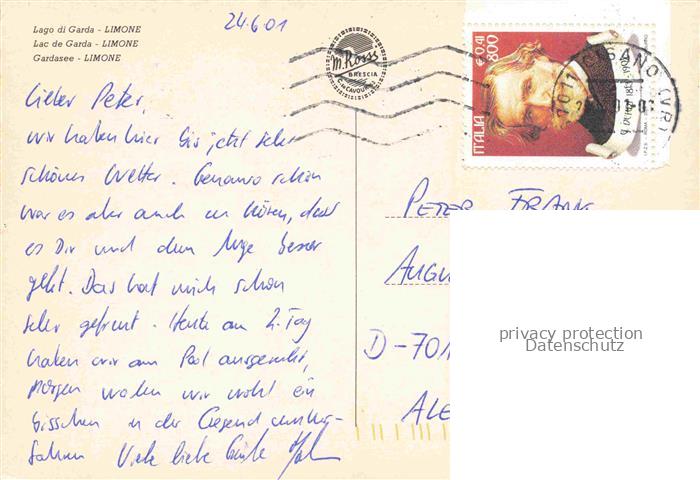 24.6.01
Lago di Garda - LIMONE
Lac de Garda - LIMONE
Gardasee - LIMONE
M. Ross
BRESCIA
ITALIA
€ 0,41
800
Lieber Peter,
wir haben hier bis jetzt sehr
schönes Wetter. Genauso schön
war es aber auch zu hören, dass
es Dir und dem Auge besser
geht. Das hat mich schon
sehr gefreut. Heute am 2. Tag
haben wir am Pool ausgeruht,
morgen wollen wir wohl ein
bisschen in der Gegend umher-
fahren Viele liebe Grüße
PETER FRANK
AUGU
D-701
ALE
privacy protection
Datenschutz